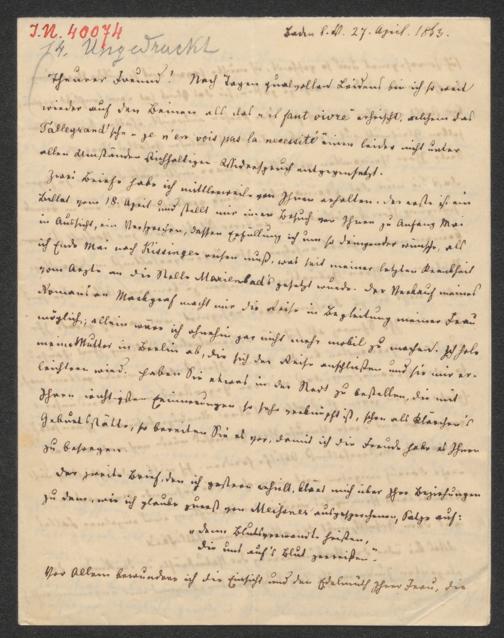 I.N. 40074
14. Ungedruckt
Baden b. W. 27. April. 1863.
Theurer Freund! Nach Tagen qualvollen Leidens bin ich so weit
wieder auf den Beinen als das "il faut vivre" erheischt, welchem das
Tallegrand'sche "je n'en vois pas la necessité" einen leider nicht unter
allen Umständen stichhaltigen Widerspruch entgegensetzt.
Zwei Briefe habe ich mittlerweile von Ihnen erhalten. Der erste ist ein
Billet vom 18. April und stellt mir einen Besuch von Ihnen zu Anfang Mai
in Aussicht, ein Versprechen, dessen Erfüllung ich um so dringender wünsche, als
ich Ende Mai nach Kissingen reisen muß, was seit meiner letzten Krankheit
vom Arzte an die Stelle Marienbad's gesetzt wurde. Der Verkauf meines
Romanes an Markgraf macht mir die Reise in Begleitung meiner Frau
möglich; allein wäre ich ohnehin gar nicht mehr mobil zu machen. Ich hole
meine Mutter in Berlin ab, die sich der Reise anschließen und sie mir er-
leichtern wird. Haben Sie etwas in der Stadt zu bestellen, die mit
Ihren wichtigsten Erinnerungen so sehr verknüpft ist, schon als Klärchen's
Geburtsstätte, so bereiten Sie es vor, damit ich die Freude habe es Ihnen
zu besorgen.
Der zweite Brief, den ich gestern erhielt, klärt mich über Ihre Beziehungen
zu dem, wie ich glaube zuerst von Meissner ausgesprochenen, Satze auf:
"denn Blutsverwandte heißen,
die uns auf's Blut zerreißen".
Vor Allem bewundere ich die Einsicht und den Edelmuth Ihrer Frau, die